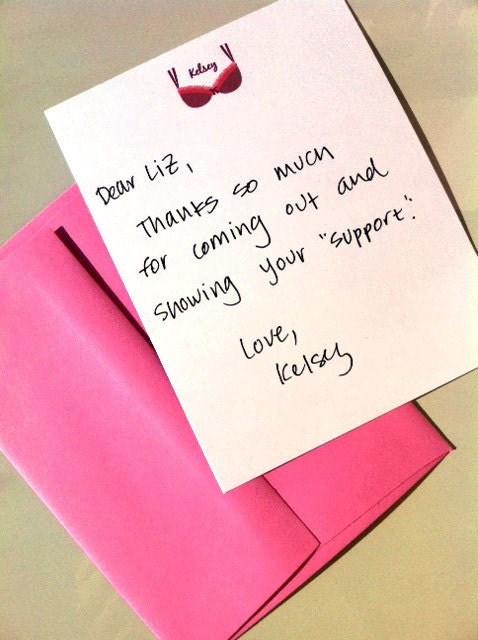 Kelsey
Dear Liz,
Thanks so much
for coming out and
showing your "support".
Love,
Kelsey